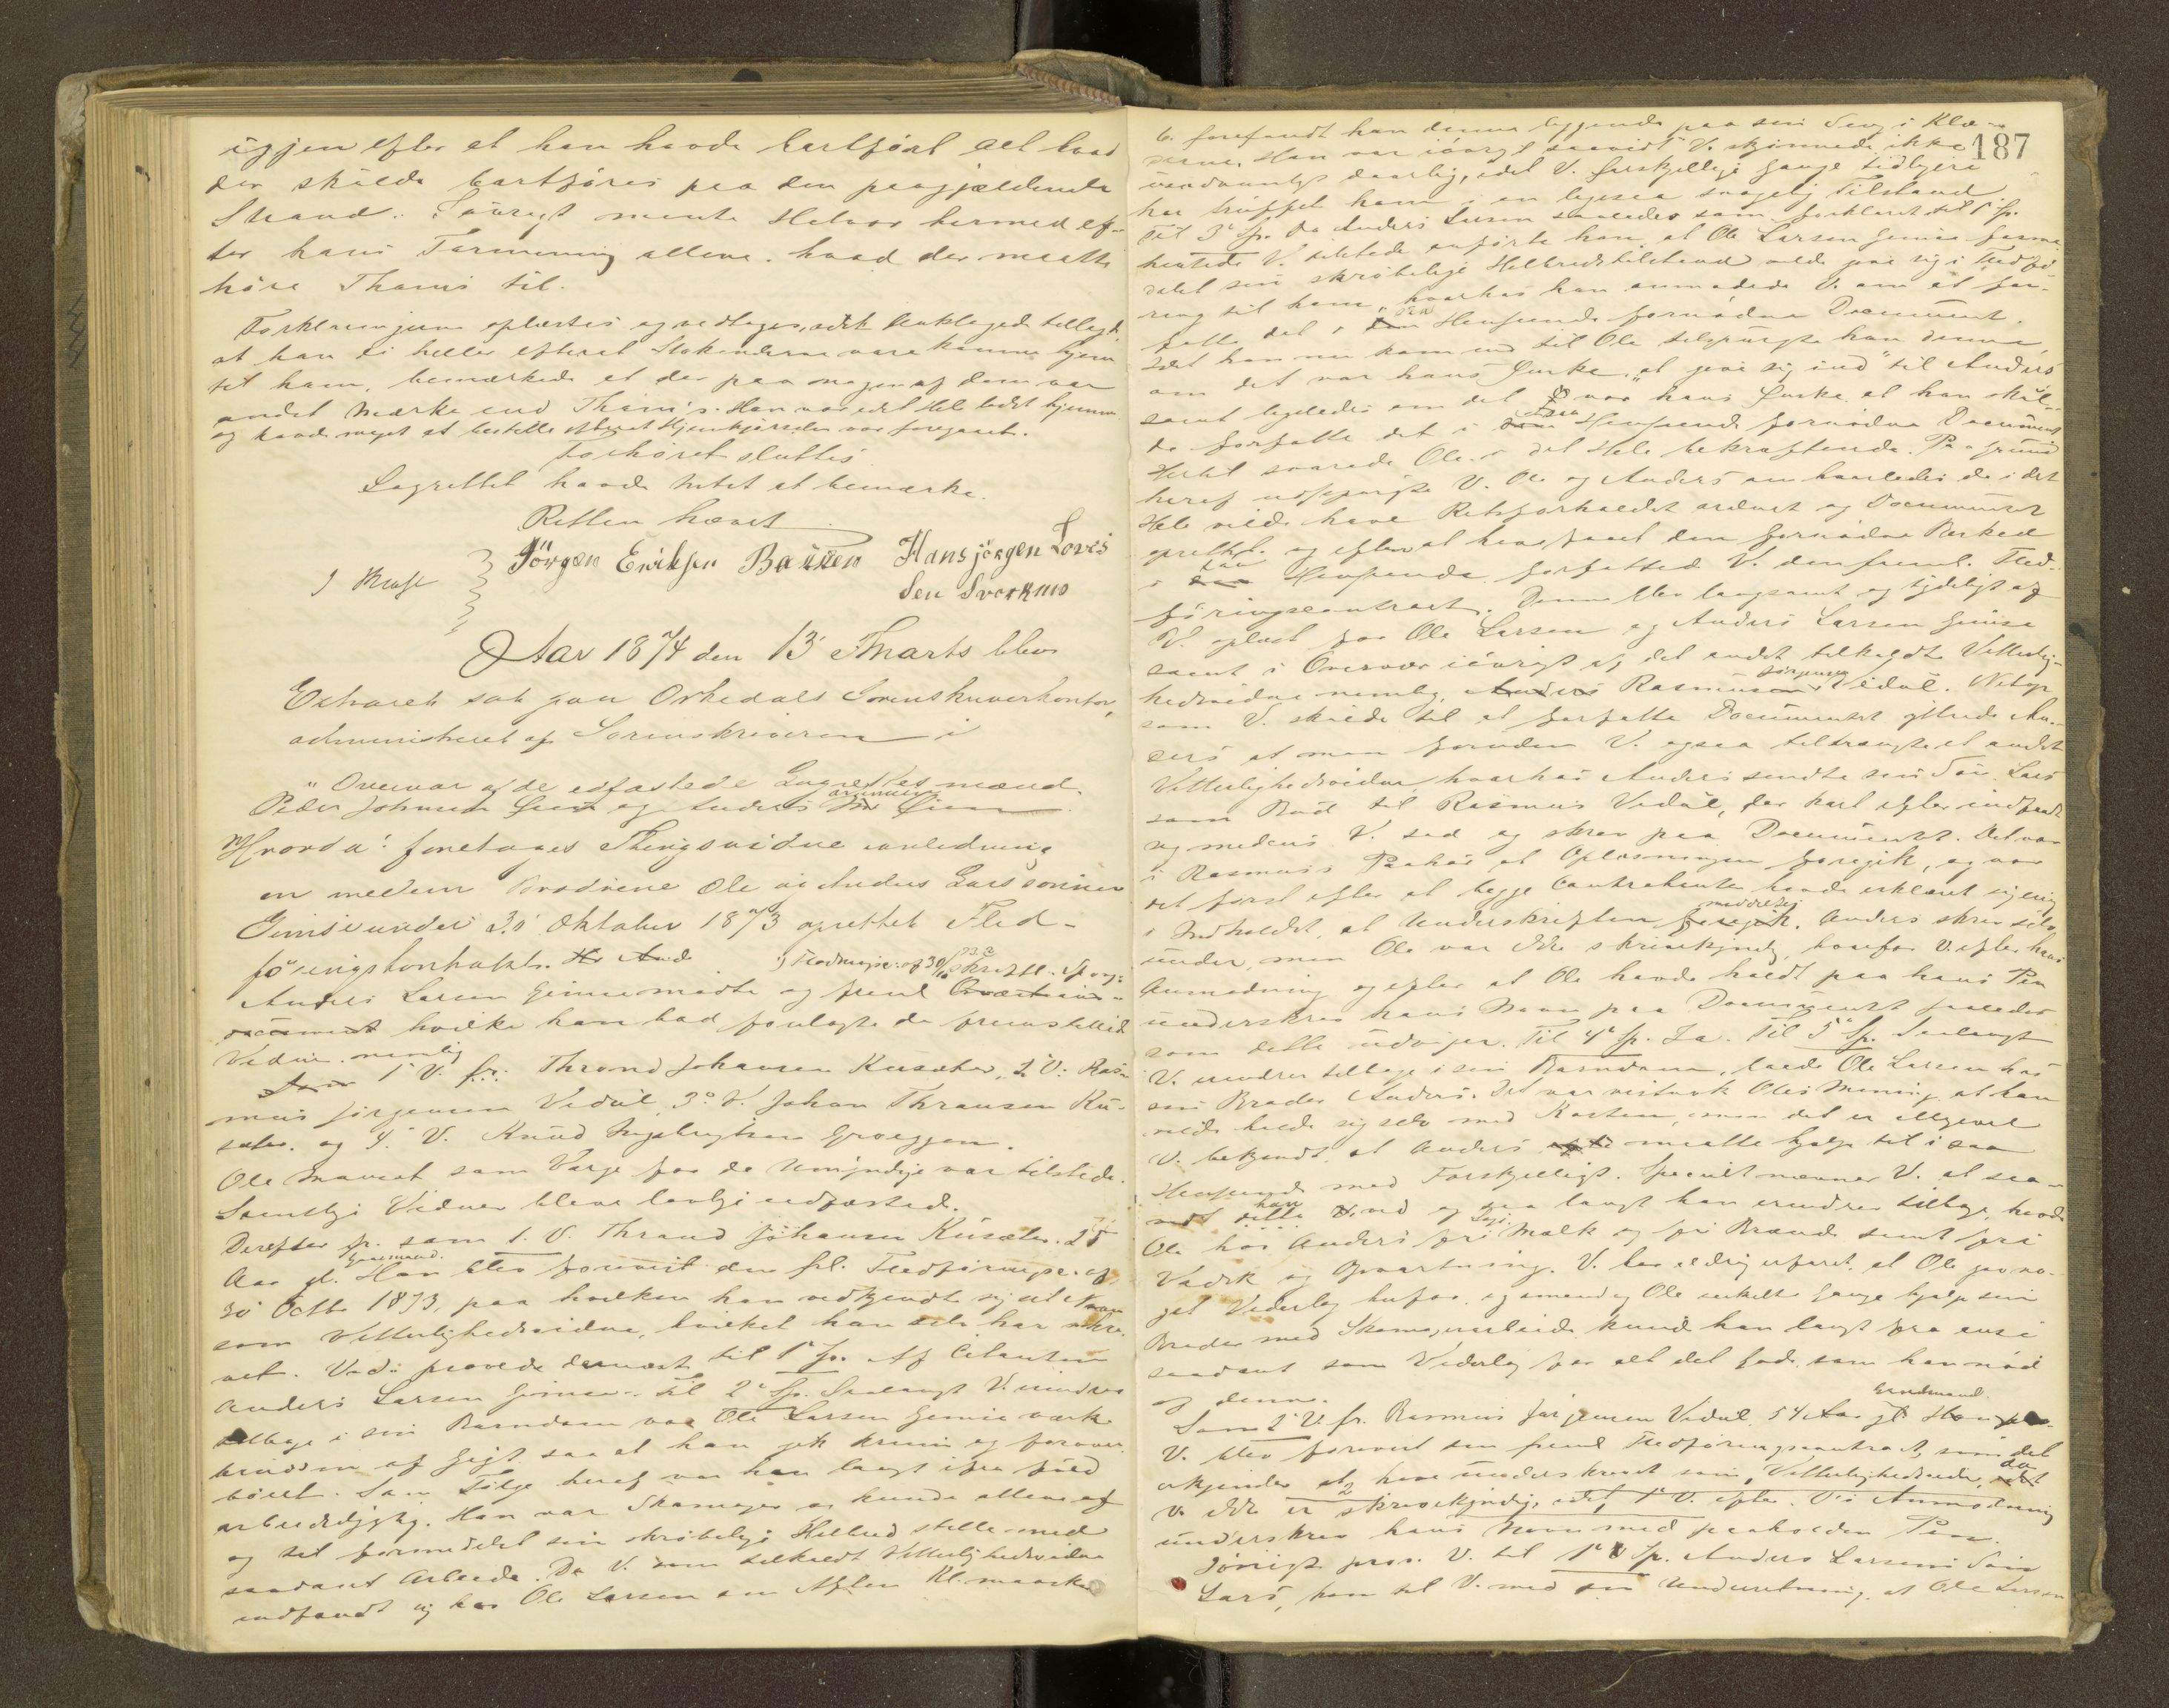 igjen efter at han havde bortført alt hvad
der skulde bortføres paa den paagjældende
Strand. Iøvrigt mente Halvor hermed ef-
ter hans Formening allene, hvad der maatte
høre Thams til.
Forklaringerne oplæstes og vedtoges, idet Anklagede tillagde,
at han ei heller efterat Stokkenderne vare komne hjem
til ham, bemærkede at der paa nogen af dem var
andet Mærke end Tham's. Han var idet Hele lidet hjemme
og havde meget at bestille efterat Hjemkjørselen var foregaaet.
Forhøret sluttes
Lagrettet havde Intet at bemærke.
Retten hævet
I Kraft Jörgen Eriksen Bakken Hansjörgen Loves
Sen Svorkmo
Aar 1874 den 13 Marts blev
Extraret sat paa Orkedals Sorenskriverkontor,
administreret af Sorenskriveren i
Overvær af de edfæstede Lagrettesmænd
Peder Johnsen og Anders
Hvorda: foretoges Thingsvidne anledning
en mellem Brødrene Ole og Anders Larssønner
Gimse under 30 Oktober 1873 oprettet Fled-
føringskontrakt.
Anders Larsen Gimse mødte og freml.
hvilke han bad forelagte de fremstillede
Vidner nemlig
1' V. Thrond Johansen Kusæter, 2' V. Ras-
mus Jørgensen Vedul, 3' V. Johan Thronsen Ku-
sæter og 4' V. Knud Ingebrigtsen Groeggen.
Ole som Værge for de Umyndige var tilstede.
Samtlige Vidner bleve lovlig edfæstede.
Derefter fr. som 1. V. Thrond Johansen Kusæter. 25
Aar gl. Han blev forevist den fl. Fledføringsc. af
30 Octbr 1873, paa hvilken han vedkjendte sig sit Navn
som Vitterlighedsvidne, hvilket han selv har skre-
vet. Vid: prøvede dernæst til 1' Sp. Af Citanten
Anders Larsen Gimse. Til 2' Sp. Saalangt V. mindes
tilbage i sin Barndom var Ole Larsen Gimse værk-
brudden af Gigt saa at han gik krum og forover-
bøiet. Som Følge heraf var han langt ifra fuld
arbeidsdygtig. Han var Skomager og kunde allene af
og til formedelst sin skrøbelige Helbred stelle med
saadant Arbeide. Da V. som tilkaldt Vitterlighedsvidne
indfandt sig hos Ole Larsen en Aften Kl. maaske
187
6. forefandt han denne liggende paa sin Seng i Klæ-
derne. Han var iøvrigt saavidt V. skjønnede ikke
usædvanlig daarlig, idet V. forskjellige Gange tidligere
har truffet ham i en ligesaa svagelig Tilstand
Til 3' Sp. Da Anders Larsen saaledes som forklaret til 1' Sp.
hentede V. tilstede anførte han, at Ole Larsen Gimse forme-
delst sin skrøbelige Helbredstilstand vilde give sig i Fledfø-
ring til ham, hvorhos han anmodede V. om at for-
fatte det i saa Henseende fornødne Document.
Idet han nu kom ind til Ole tilspurgte han denne,
om det var hans Ønske, "at give sig ind" til Anders
samt ligeledes om det var hans Ønske at han skul-
de forfatte det i saa Henseende fornødne Document
Hertil svarede Ole i det Hele bekræftende. Paa Grund
heraf udspurgte V. Ole og Anders om hvorledes de i det
Hele vilde have Retsforholdet ordnet og Documentet
oprettet og efter at have faaet den fornødne Besked
i saa Henseende forfattede V. den freml. Fled-
føringscontract. Denne blev langsomt og tydeligt af
V. oplæst for Ole Larsen og Anders Larsen Gimse
samt i Overvær iøvrigt af det andet tilkaldte Vitterlig-
hedsvidne nemlig Rasmus Jørgensen Vedul. Netop
som V. skulde til at forfatte Documentet yttrede An-
ders at man foruden V. ogsaa tiltrængte et andet
Vitterlighedsvidne, hvorhos Anders sendte sin Søn Lars
som Bud til Rasmus Vedul, der kort efter indfandt
sig medens V. sad og skrev paa Documentet. Det var
i Rasmus's Paahør at Oplæsningen foregik, og var
det først efter at begge Contrahenter havde erklæret sig enig
i Indholdet, at Underskriften meddeltes. Anders skrev selv
under, men Ole var ikke skrivekyndig, hvorfor V. efter hans
Anmodning og efter at Ole havde holdt paa hans Pen
underskrev hans Navn paa Documentet saaledes
som dette udviser. Til 4' Sp. Ja. Til 5' Sp. Saalangt
V. erindrer tilbage i sin Barndom, levde Ole Larsen hos
sin Broder Anders. Det var vistnok Oles Mening at han
vilde holde sig selv med Kosten, men det er alligevel
V. bekjendt, at Anders maatte hjælpe til i saa
Henseende med Forskjelligt. Specielt nævner V. at saa-
vidt han ved og saa langt han erindrer tilbage, havde
Ole hos Anders fri Logi Mælk og fri Brænde samt fri
Vadsk og Opvartning. V. har aldrig erfaret, at Ole gav no-
get Vederlag herfor, og omendog Ole enkelte Gange hjalp sin
Broder med Skomagerarbeide kunde han langt fra ansee
saadant som Vederlag for alt det Gode, som han nød
af denne.
Som 2' V. fr. Rasmus Jørgensen Vedul. 54 Aar gl. Gaardmand.
V. blev forevist den freml. Fledføringscontract, som det
erkjendes at have underskrevet som Vitterlighedsvidne, da
V. ikke er skrivekyndig, idet 1' V. efter V's Anmodning
underskrev hans Navn med paaholden Pen.
Iøvrigt prov. V. til 1' Sp. Anders Larsens Søn
Lars, kom til V. med Underretning, at Ole Larsen